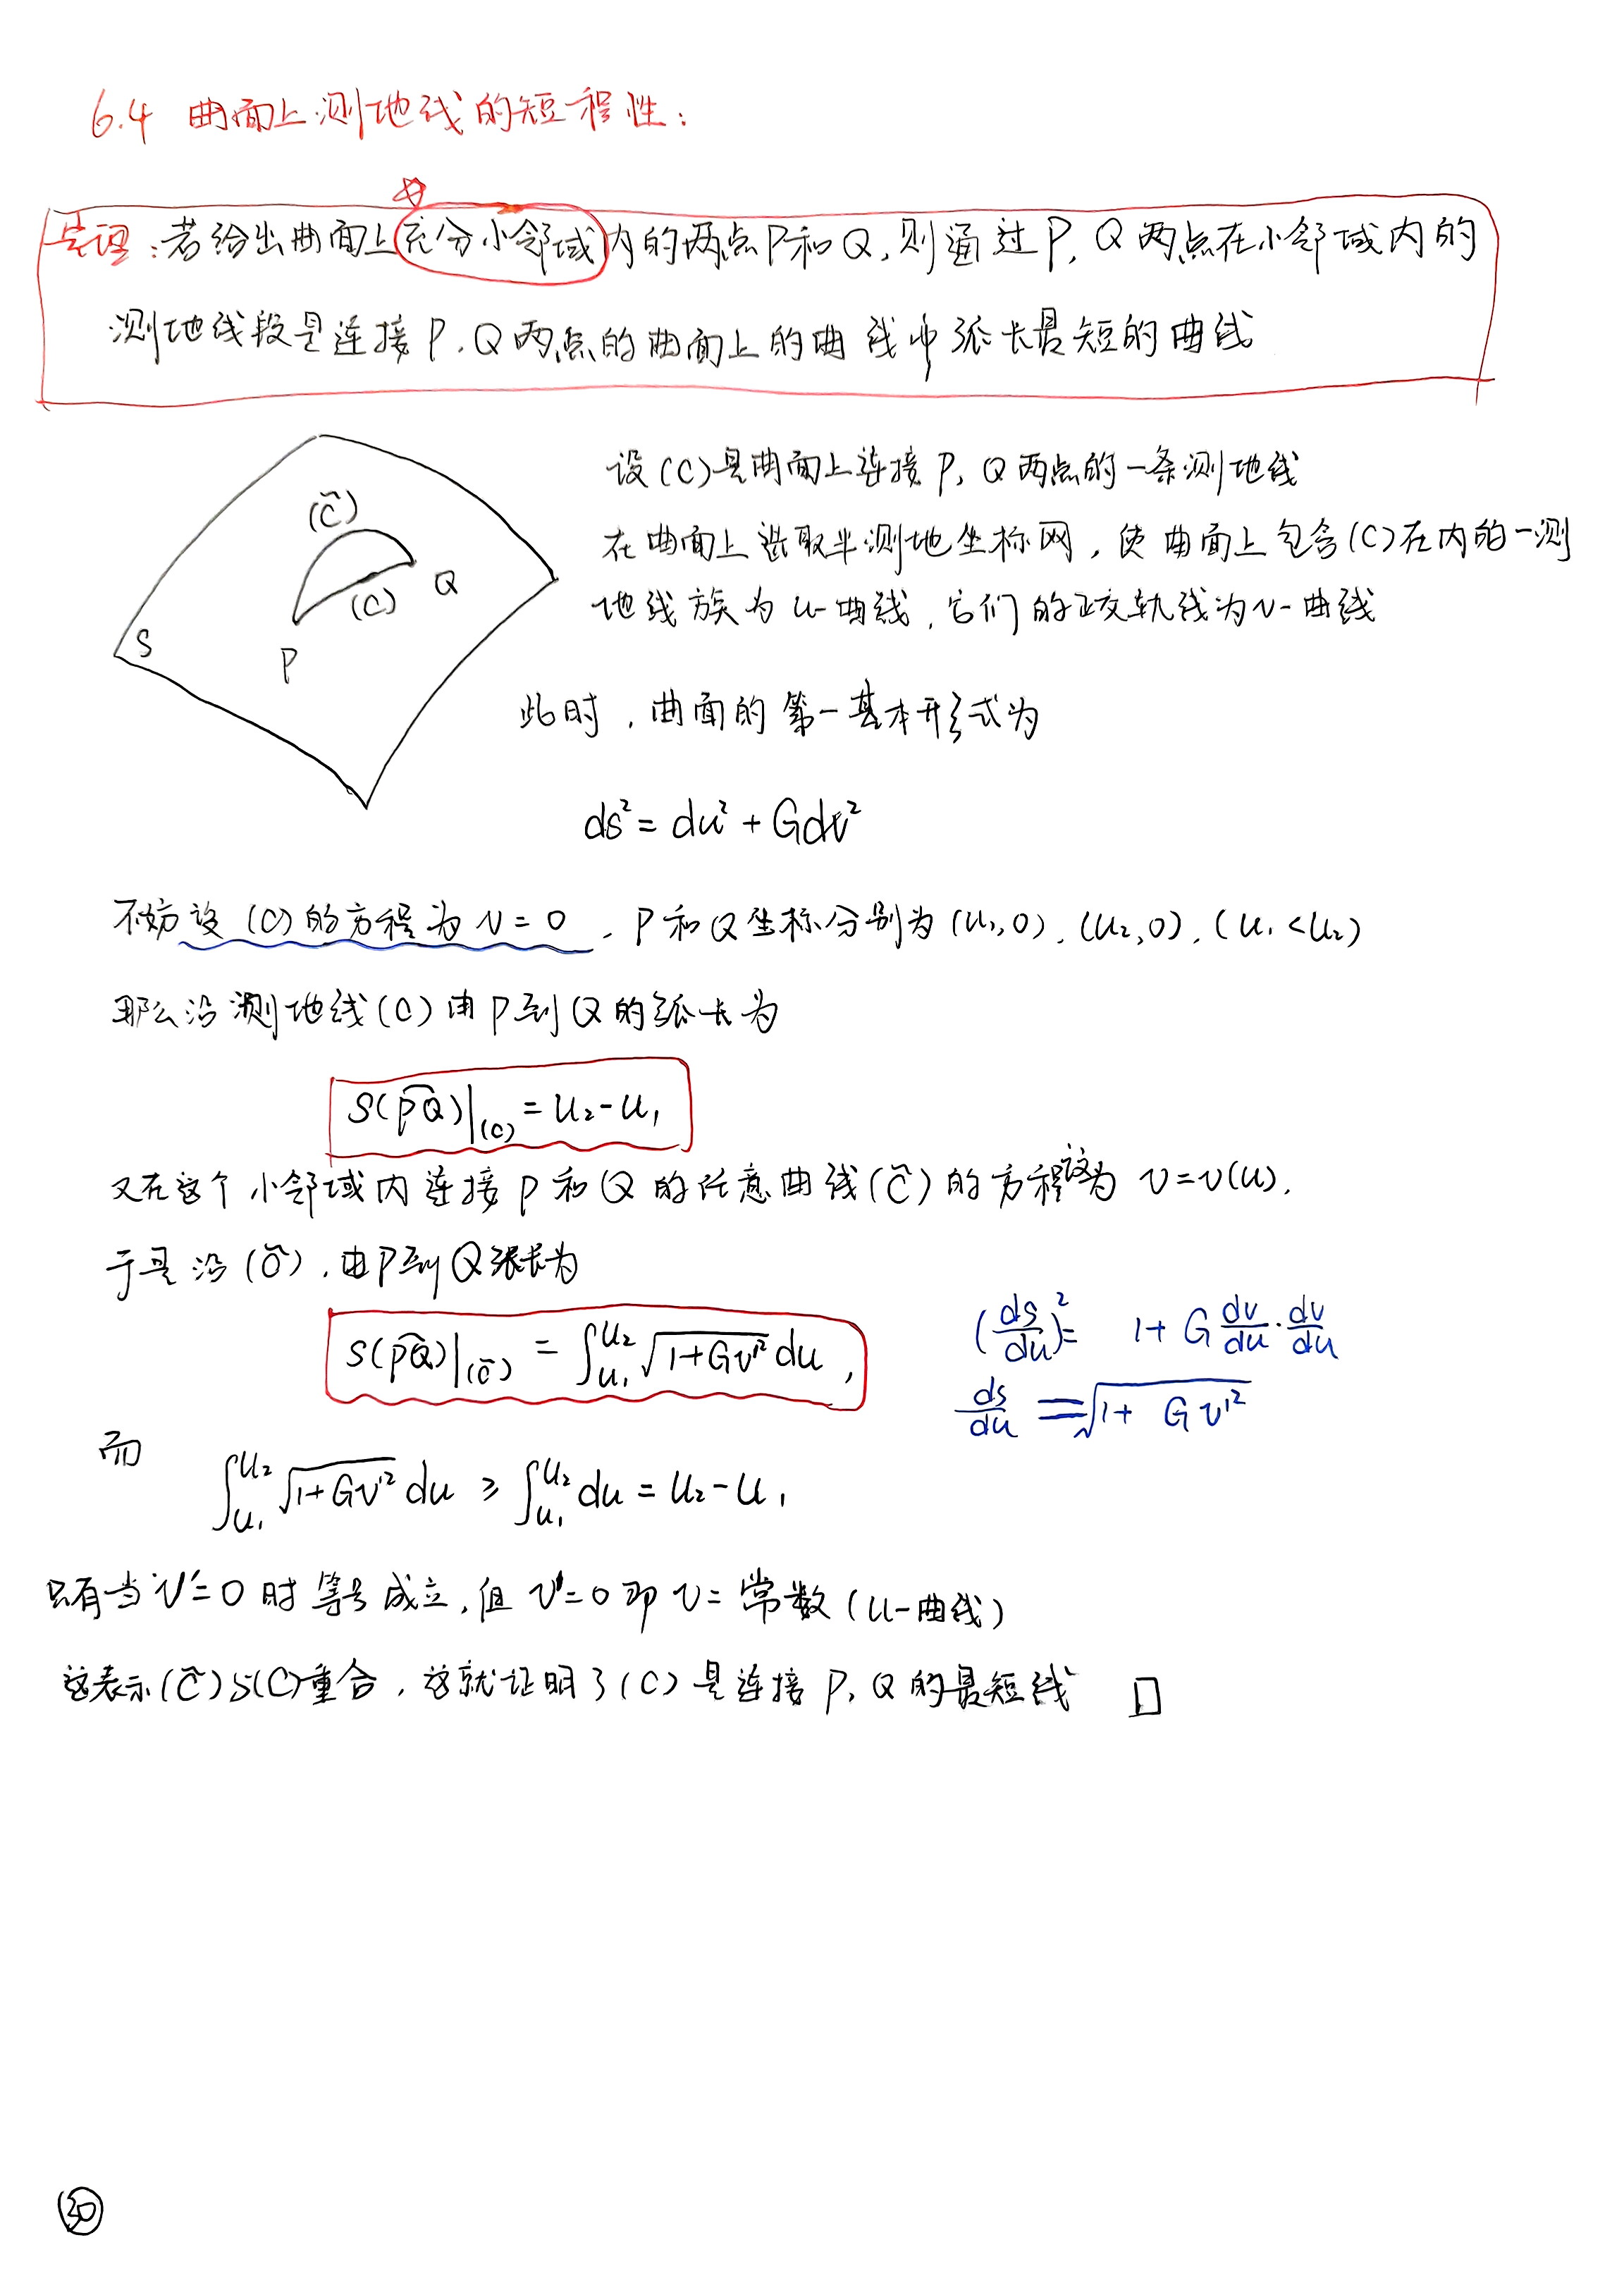 6.4 曲面上测地线的短程性:
定理:若给出曲面上充分小邻域内的两点P和Q,则通过P,Q两点在小邻域内的
测地线段是连接P,Q两点的曲面上的曲线中弧长最短的曲线
设(C)是曲面上连接P,Q两点的一条测地线
在曲面上选取半测地坐标网,使曲面上包含(C)在内的一测
地线族为u-曲线,它们的正交轨线为v-曲线
(C̃)
(C)
Q
S
P
此时,曲面的第一基本形式为
ds²=du²+Gdv²
不妨设(C)的方程为v=0,P和Q坐标分别为(u₁,0),(u₂,0),(u₁<u₂)
那么沿测地线(C)由P到Q的弧长为
S(P͡Q)|(C)=u₂-u₁
又在这个小邻域内连接P和Q的任意曲线(C̃)的方程设为v=v(u).
于是沿(C̃),由P到Q弧长为
S(P͡Q)|(C̃)=∫_{u₁}^{u₂}√(1+Gv'²)du,
(ds/du)²= 1+G dv/du·dv/du
ds/du=√(1+Gv'²)
而
∫_{u₁}^{u₂}√(1+Gv'²)du≥∫_{u₁}^{u₂}du=u₂-u₁
只有当v'=0时等号成立,但v'=0即v=常数(u-曲线)
这表示(C̃)与(C)重合,这就证明了(C)是连接P,Q的最短线 □
㉚